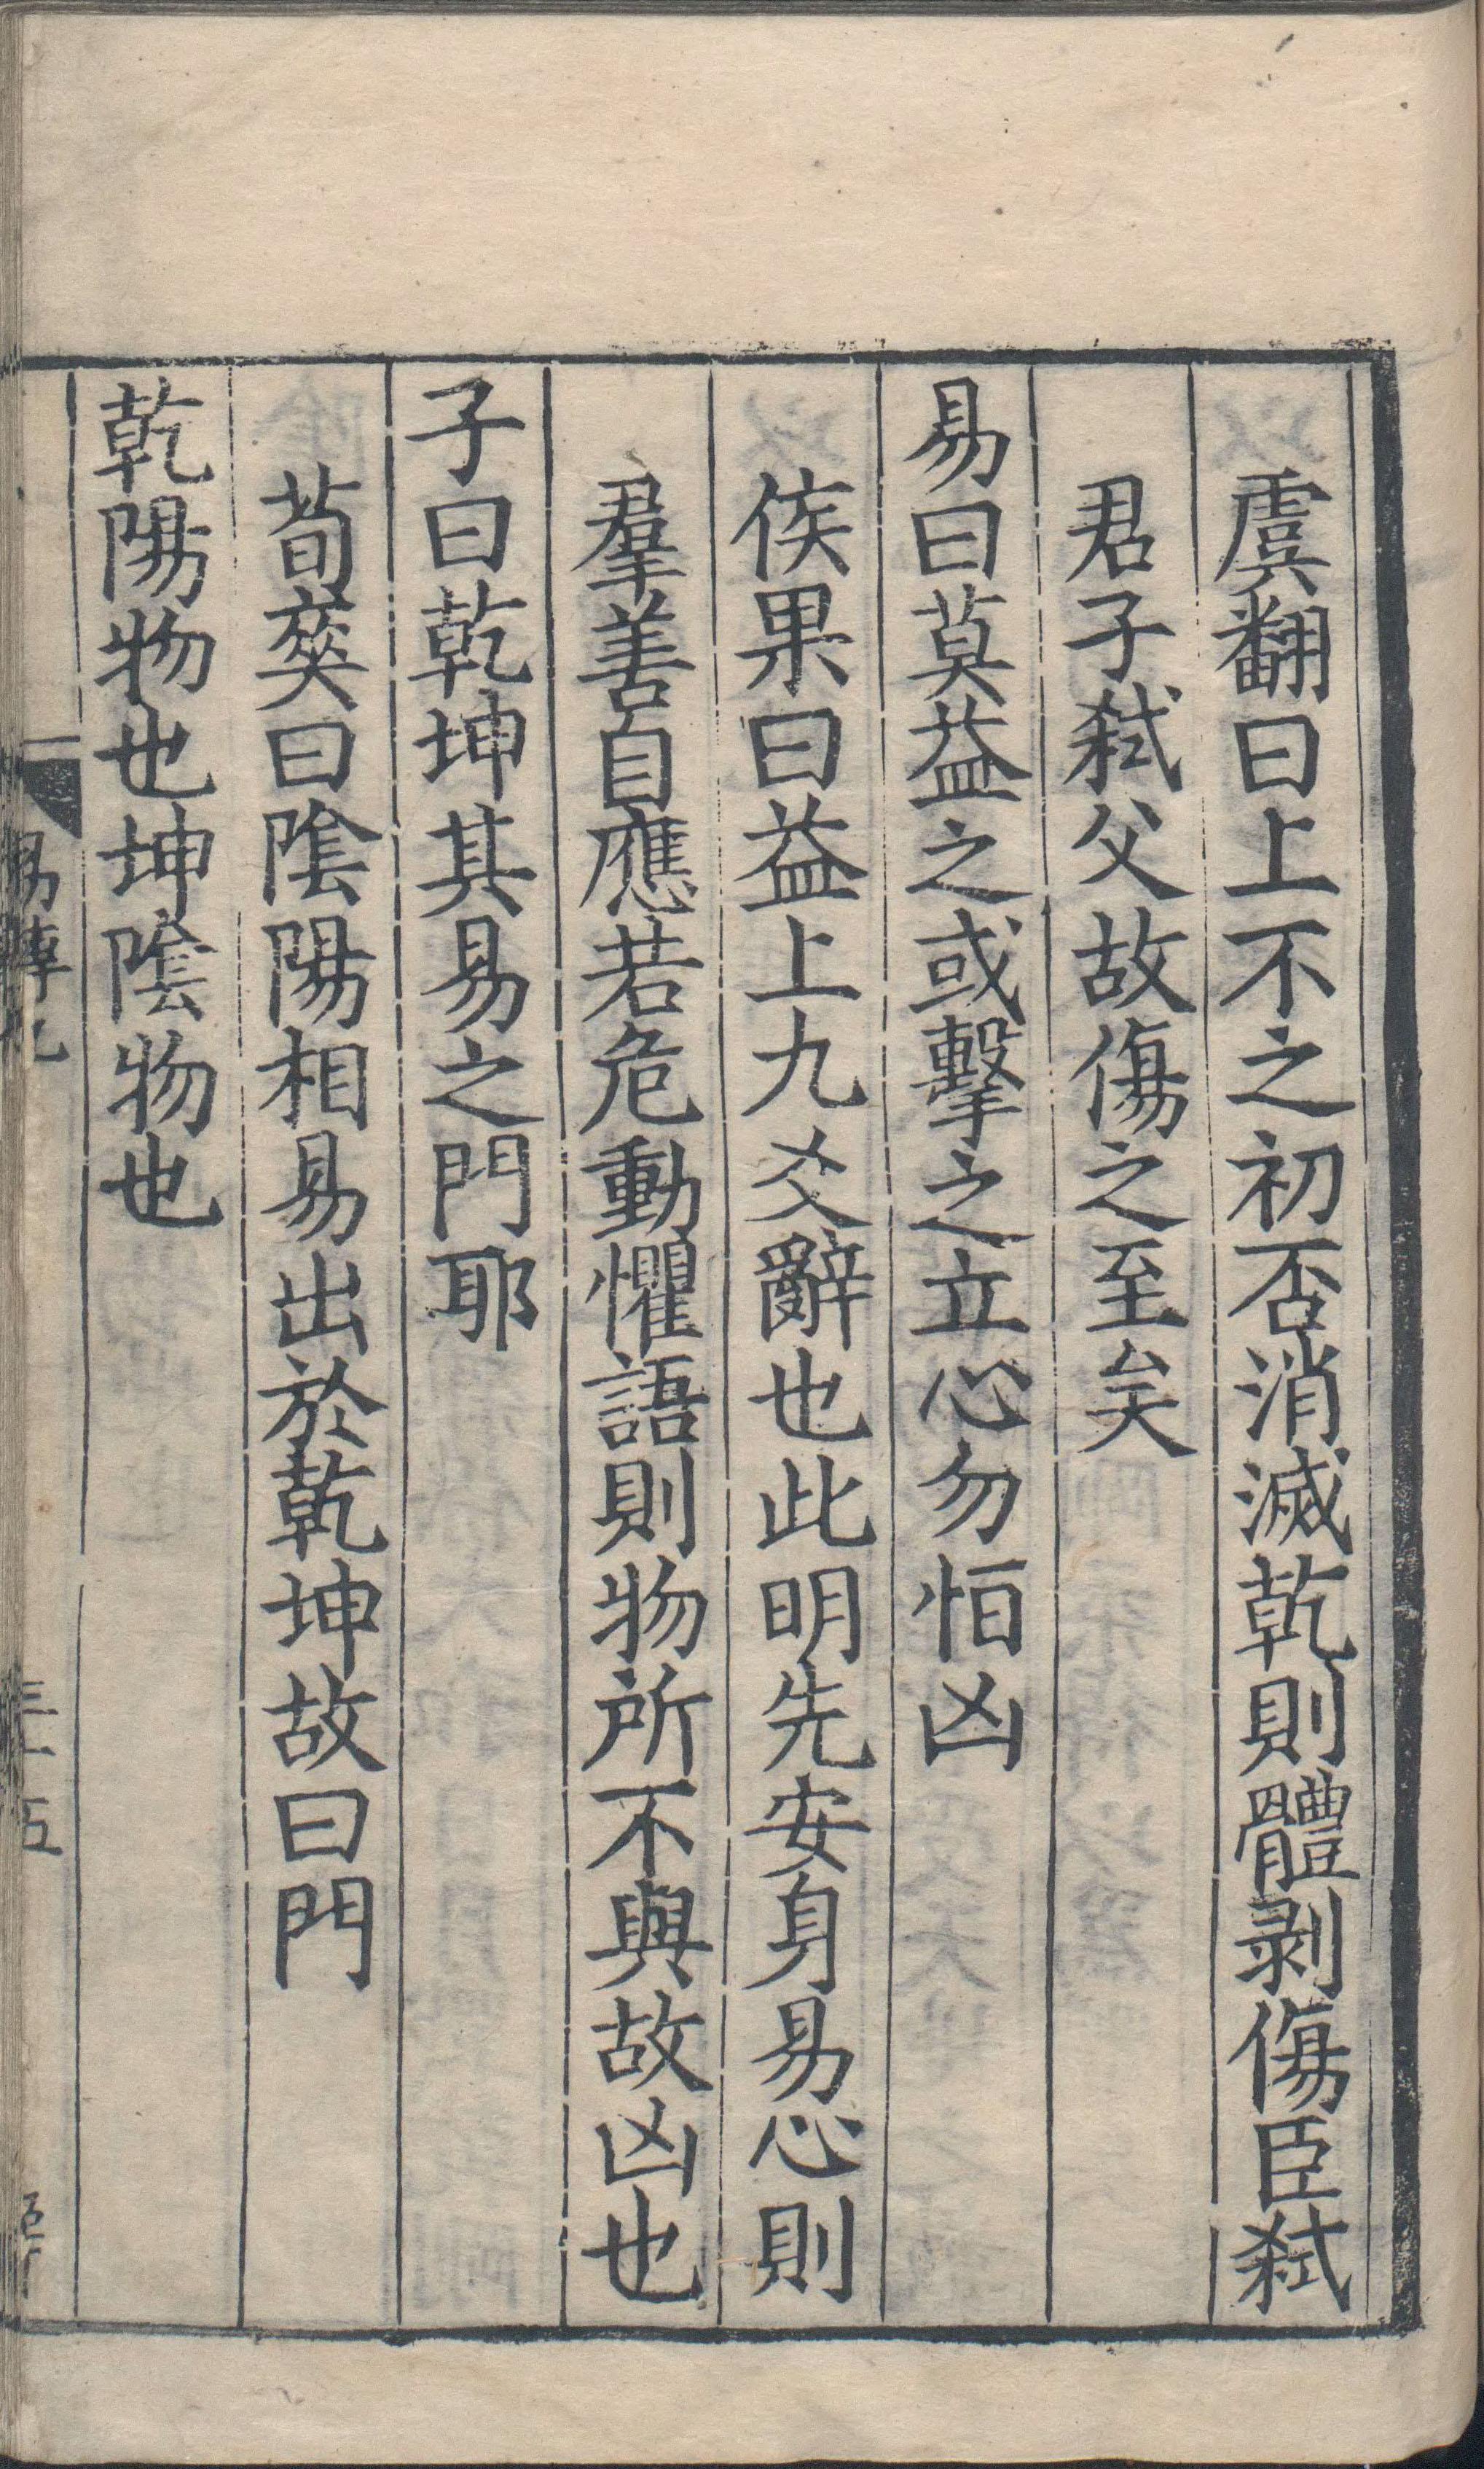 虞翻曰上不之初否消滅乾則體剥傷臣弑
君子弑父故傷之至矣
易曰莫益之或擊之立心勿恒凶
侯果曰益上九爻辭也此明先安身易心則
羣善自應若危動懼語則物所不與故凶也
子曰乾坤其易之門耶
荀爽曰陰陽相易出於乾坤故曰門
乾陽物也坤陰物也
易傳九
三十五